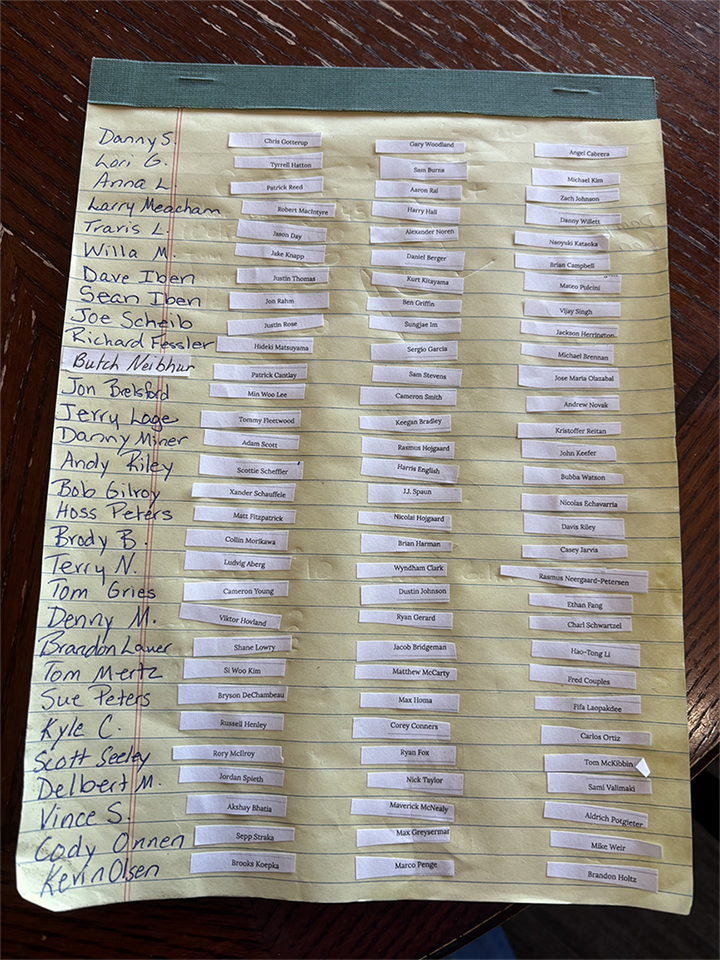 Danny S. Chris Gotterup Gary Woodland Angel Cabrera
Lori G. Tyrrell Hatton Sam Burns Michael Kim
Anna L. Patrick Reed Aaron Rai Zach Johnson
Larry Meacham Robert MacIntyre Harry Hall Danny Willett
Travis L. Jason Day Alexander Noren Naoyuki Kataoka
Willa M. Jake Knapp Daniel Berger Brian Campbell
Dave Iben Justin Thomas Kurt Kitayama Mateo Pulcini
Sean Iben Jon Rahm Ben Griffin Vijay Singh
Joe Scheib Justin Rose Sungjae Im Jackson Herrington
Richard Fessler Hideki Matsuyama Sergio Garcia Michael Brennan
Butch Neibhur Patrick Cantlay Sam Stevens Jose Maria Olazabal
Jon Brelsford Min Woo Lee Cameron Smith Andrew Novak
Jerry Lage Tommy Fleetwood Keegan Bradley Kristoffer Reitan
Danny Miner Adam Scott Rasmus Hojgaard John Keefer
Andy Riley Scottie Scheffler Harris English Bubba Watson
Bob Gilroy Xander Schauffele J.J. Spaun Nicolas Echavarria
Hoss Peters Matt Fitzpatrick Nicolai Hojgaard Davis Riley
Brody B. Collin Morikawa Brian Harman Casey Jarvis
Terry N. Ludvig Aberg Wyndham Clark Rasmus Neergaard-Petersen
Tom Gries Cameron Young Dustin Johnson Ethan Fang
Denny M. Viktor Hovland Ryan Gerard Charl Schwartzel
Brandon Lauer Shane Lowry Jacob Bridgeman Hao-Tong Li
Tom Mertz Si Woo Kim Matthew McCarty Fred Couples
Sue Peters Bryson DeChambeau Max Homa Fifa Laopakdee
Kyle C. Russell Henley Corey Conners Carlos Ortiz
Scott Seeley Rory McIlroy Ryan Fox Tom McKibbin
Delbert M. Jordan Spieth Nick Taylor Sami Valimaki
Vince S. Akshay Bhatia Maverick McNealy Aldrich Potgieter
Cody Onnen Sepp Straka Max Greyserman Mike Weir
Kevin Olsen Brooks Koepka Marco Penge Brandon Holtz